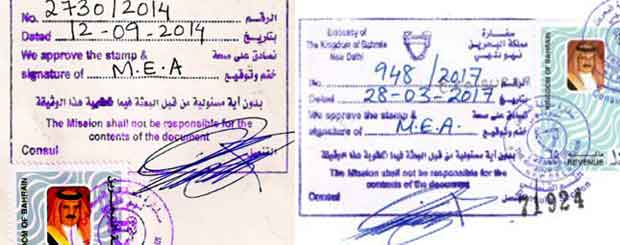 No. 2730/2014 الرقم
Dated 12-09-2014 بتاريخ
We approve the stamp & نصادق على صحة
signature of M.E.A ختم وتوقيع
بدون أية مسئولية من قبل البعثة فيما تحتويه هذا الوثيقة
The Mission shall not be responsible for the
contents of the document
Consul القنصل
KINGDOM OF BAHRAIN
Embassy of سفارة
The Kingdom of Bahrain مملكة البحرين
New Delhi نيودلهي
No. 948/2017 الرقم
Dated 28-03-2017 بتاريخ
We approve the stamp & نصادق على صحة
signature of M.E.A. ختم وتوقيع
بدون أية مسئولية من قبل البعثة فيما تحتويه هذا الوثيقة
The Mission shall not be responsible for the
contents of the document
Consul القنصل
KINGDOM OF BAHRAIN
REVENUE
71924